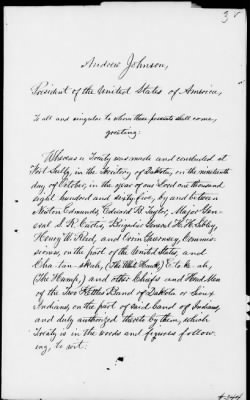 3
Andrew Johnson,
President of the United States of America,
To all and singular to whom these presents shall come,
greeting:
Whereas a Treaty was made and concluded at
Fort Sully, in the Territory of Dakota, on the nineteenth
day of October, in the year of our Lord one thousand
eight hundred and sixty-five, by and between
Newton Edmunds, Edward B. Taylor, Major Gen-
eral S. R. Curtis, Brigadier General H. H. Sibley,
Henry W. Reed, and Orrin Guernsey, Commis-
sioners, on the part of the United States, and
Cha-tan-skah, (The White Hawk,) E-to-ke-ah,
(The Hump,) and other Chiefs and Head Men
of the Two Kettles Band of Dakota or Sioux
Indians, on the part of said band of Indians,
and duly authorized thereto by them, which
Treaty is in the words and figures follow-
ing, to wit: